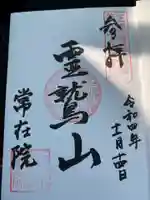 参拝
令和四年
十一月十四日
霊鷲山
常在院